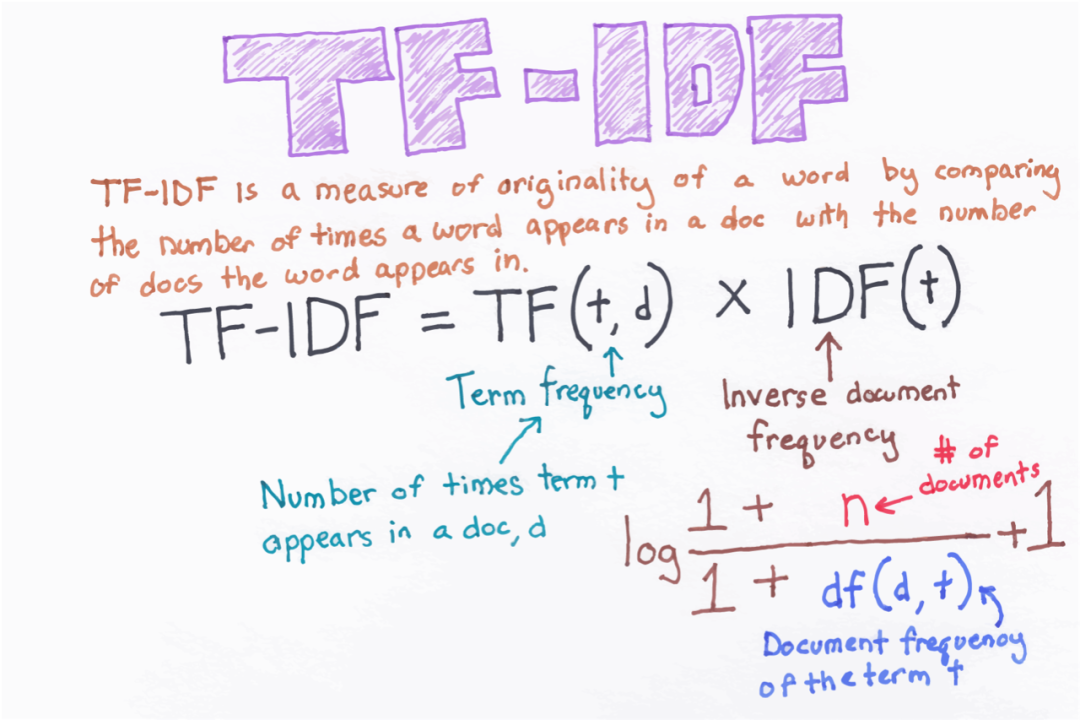 TF-IDF
TF-IDF is a measure of originality of a word by comparing
the number of times a word appears in a doc with the number
of docs the word appears in.
TF-IDF = TF(t, d) × IDF(t)
Term frequency
Inverse document
frequency
Number of times term t
appears in a doc, d
# of
documents
log 1 + n + 1
1 + df(d, t)
Document frequency
of the term t